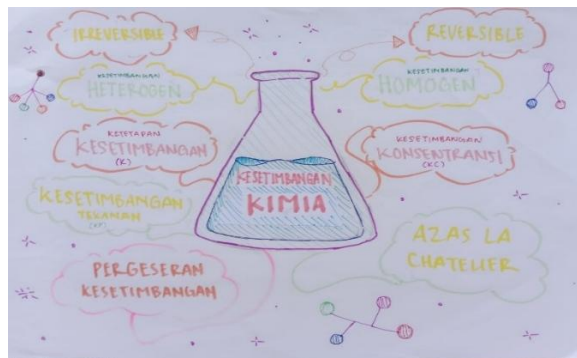 IRREVERSIBLE
REVERSIBLE
KESETIMBANGAN
HETEROGEN
KESETIMBANGAN
HOMOGEN
KETETAPAN
KESETIMBANGAN
(K)
KESETIMBANGAN
KONSENTRANSI
(KC)
KESETIMBANGAN
KIMIA
KESETIMBANGAN
TEKANAN
(KP)
AZAS LA
CHATELIER
PERGESERAN
KESETIMBANGAN